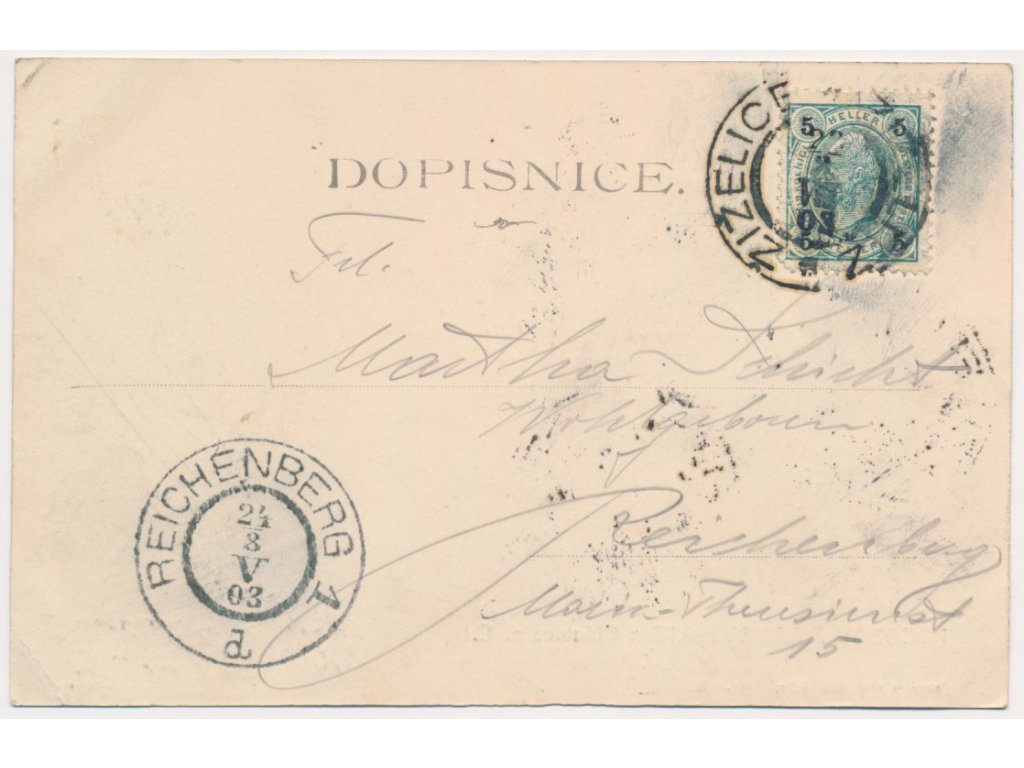 DOPISNICE.
ŽIŽELICE
5 HELLER 5
03
5
Frl.
Martha Schicht
Wohlgeboren
Reichenberg
Maria-Theresienst
15
REICHENBERG 1
24
8
V
03
d